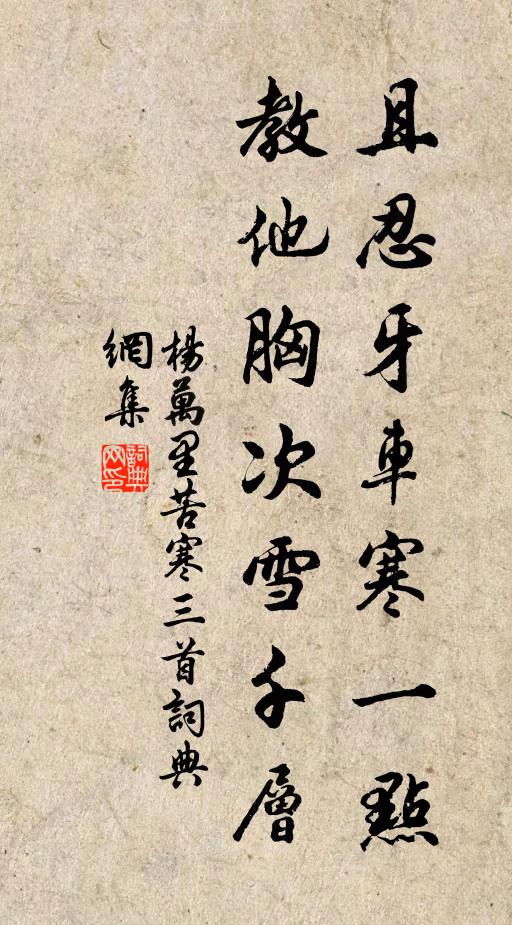 且忍牙車寒一點
教他胸次雪千層
楊萬里苦寒三首詞典
網集
詞典
网印